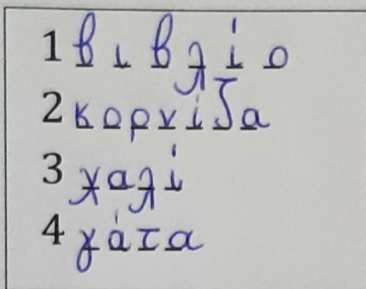 1 βιβλίο
2 κορνίζα
3 χαλί
4 γάτα